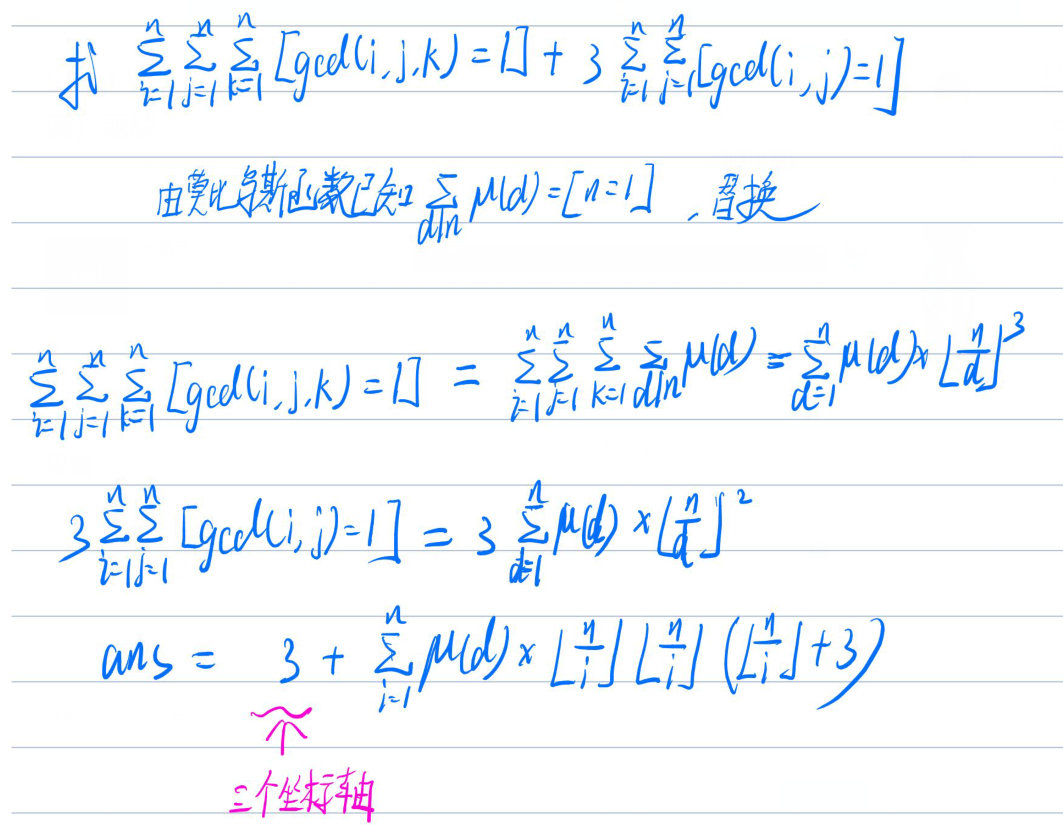 求 \sum_{i=1}^{n} \sum_{j=1}^{n} \sum_{k=1}^{n} [gcd(i,j,k)=1] + 3 \sum_{i=1}^{n} \sum_{j=1}^{n} [gcd(i,j)=1]
由莫比乌斯函数已知 \sum_{d|n} μ(d) = [n=1] , 替换
\sum_{i=1}^{n} \sum_{j=1}^{n} \sum_{k=1}^{n} [gcd(i,j,k)=1] = \sum_{i=1}^{n} \sum_{j=1}^{n} \sum_{k=1}^{n} \sum_{d|n} μ(d) = \sum_{d=1}^{n} μ(d) × ⌊\frac{n}{d}⌋^3
3 \sum_{i=1}^{n} \sum_{j=1}^{n} [gcd(i,j)=1] = 3 \sum_{d=1}^{n} μ(d) × ⌊\frac{n}{d}⌋^2
ans = 3 + \sum_{i=1}^{n} μ(d) × ⌊\frac{n}{i}⌋ ⌊\frac{n}{i}⌋ (⌊\frac{n}{i}⌋+3)
三个坐标轴